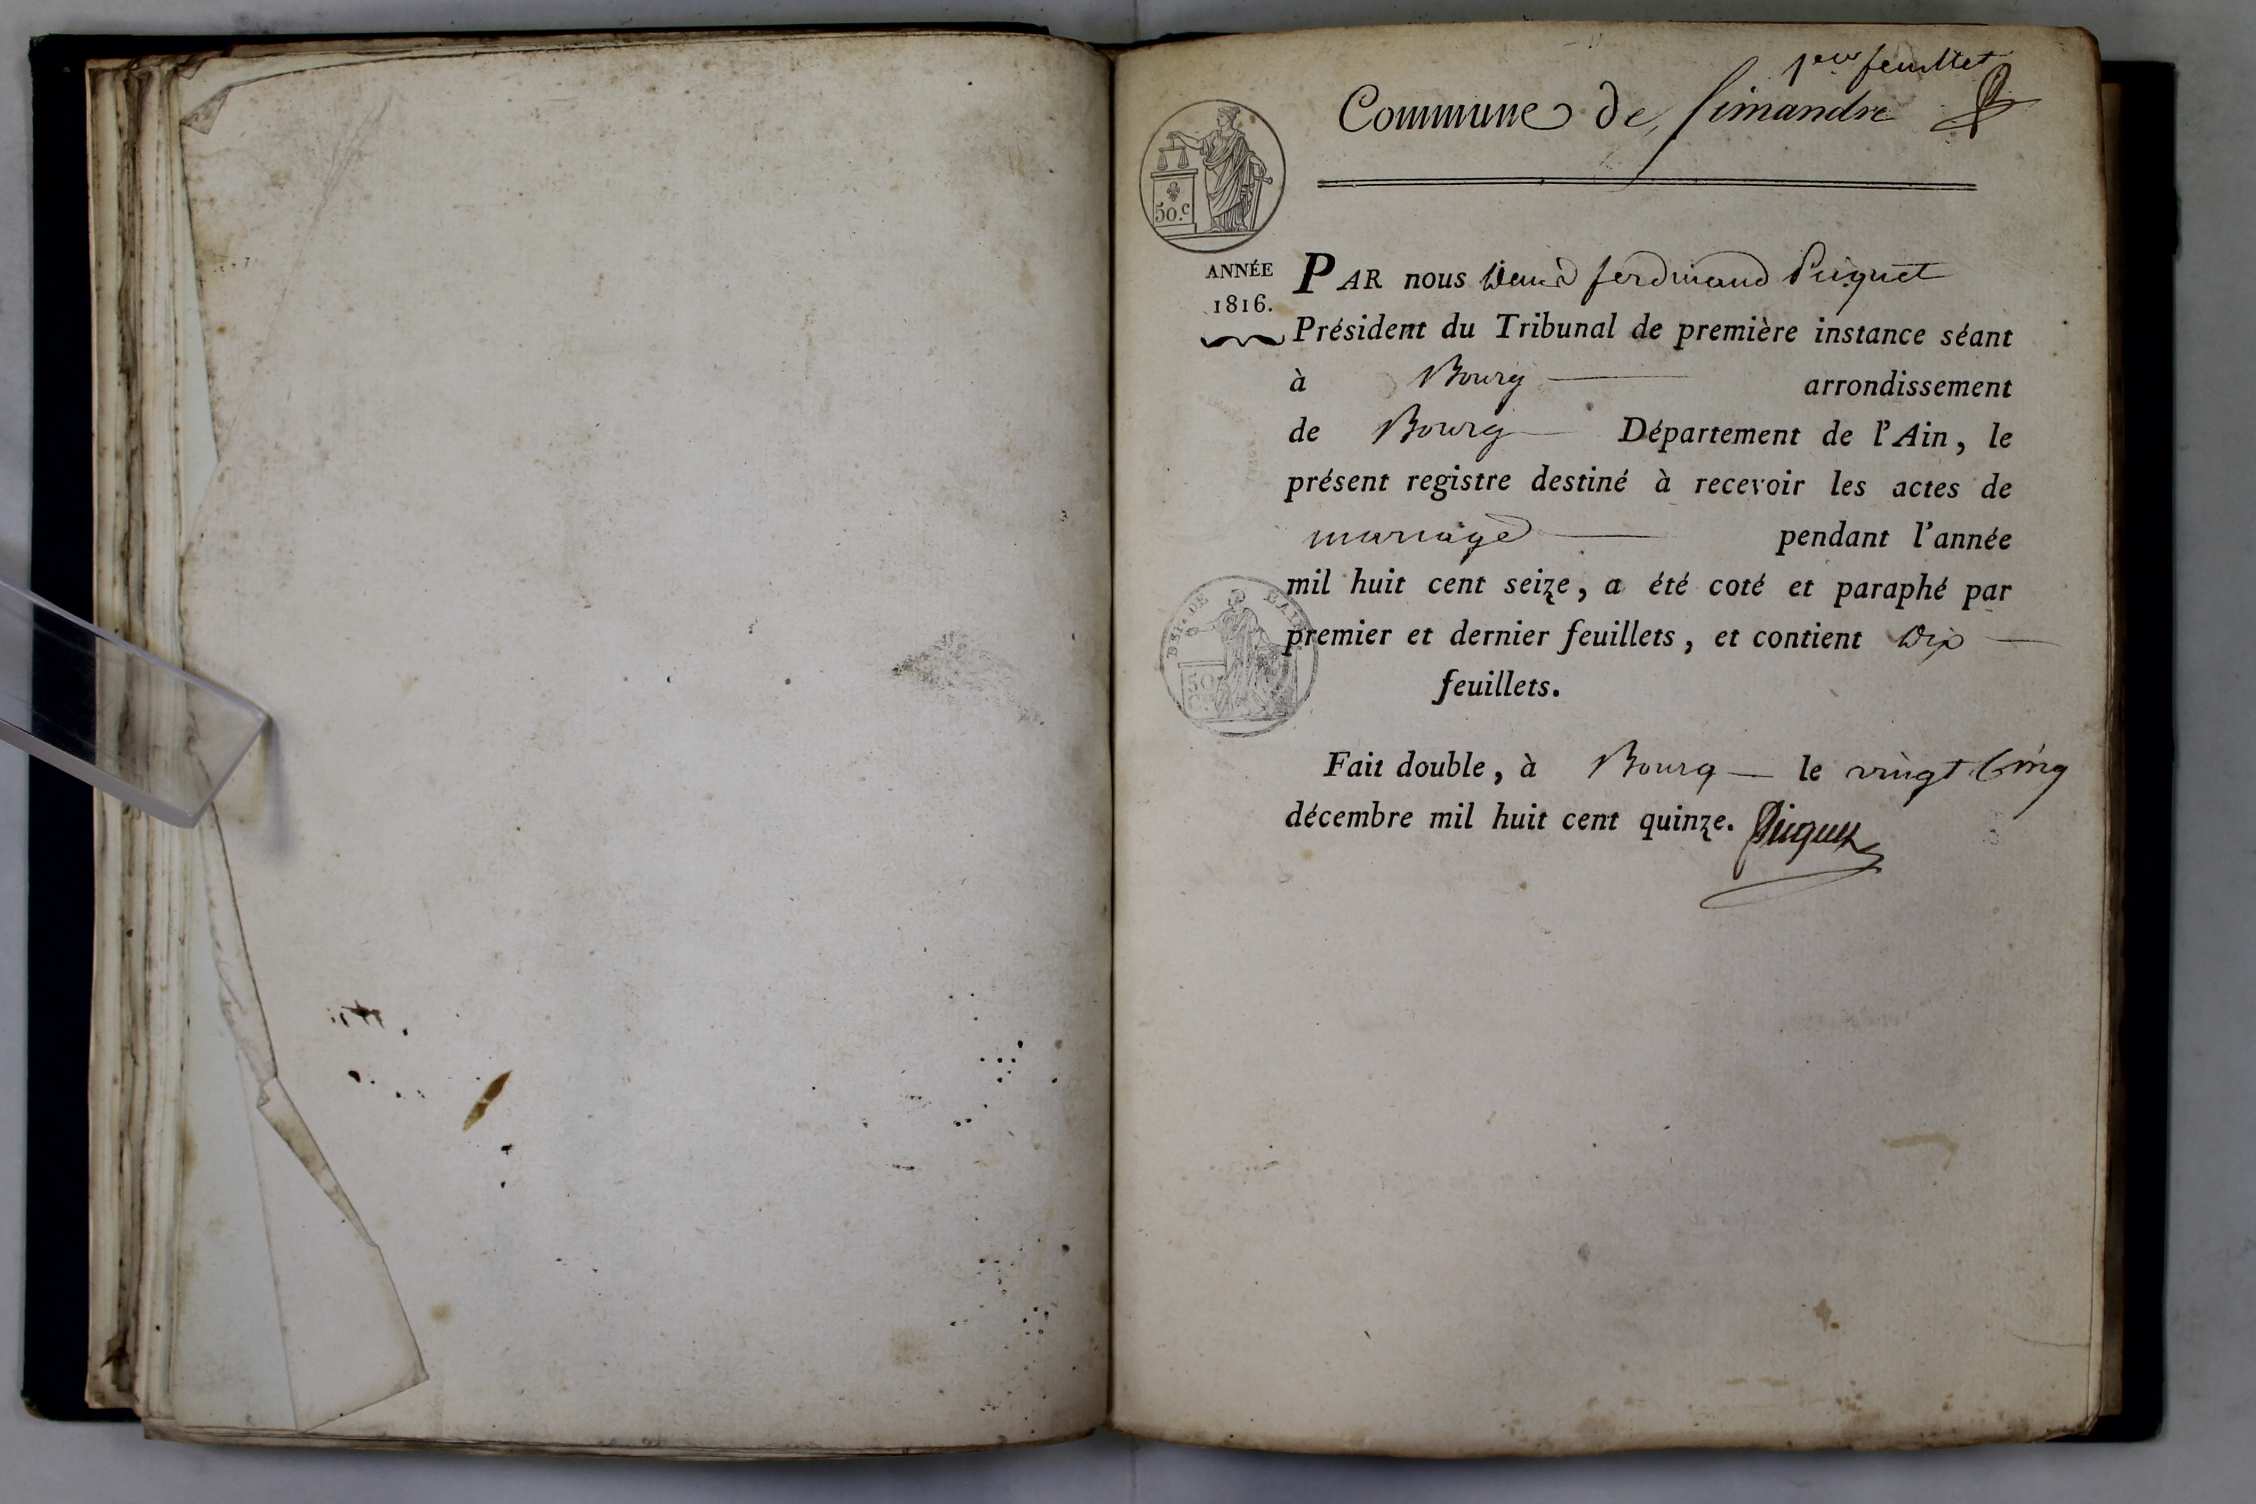 1er feuillet
Commune de Simandre
50.c
ANNÉE
1816.
PAR nous Denis ferdinand Piquet
Président du Tribunal de première instance séant
à Bourg arrondissement
de Bourg Département de l'Ain, le
présent registre destiné à recevoir les actes de
mariage pendant l'année
mil huit cent seize, a été coté et paraphé par
premier et dernier feuillets, et contient Dix
feuillets.
50
C.
Fait double, à Bourg le vingt Cinq
décembre mil huit cent quinze. Piquet